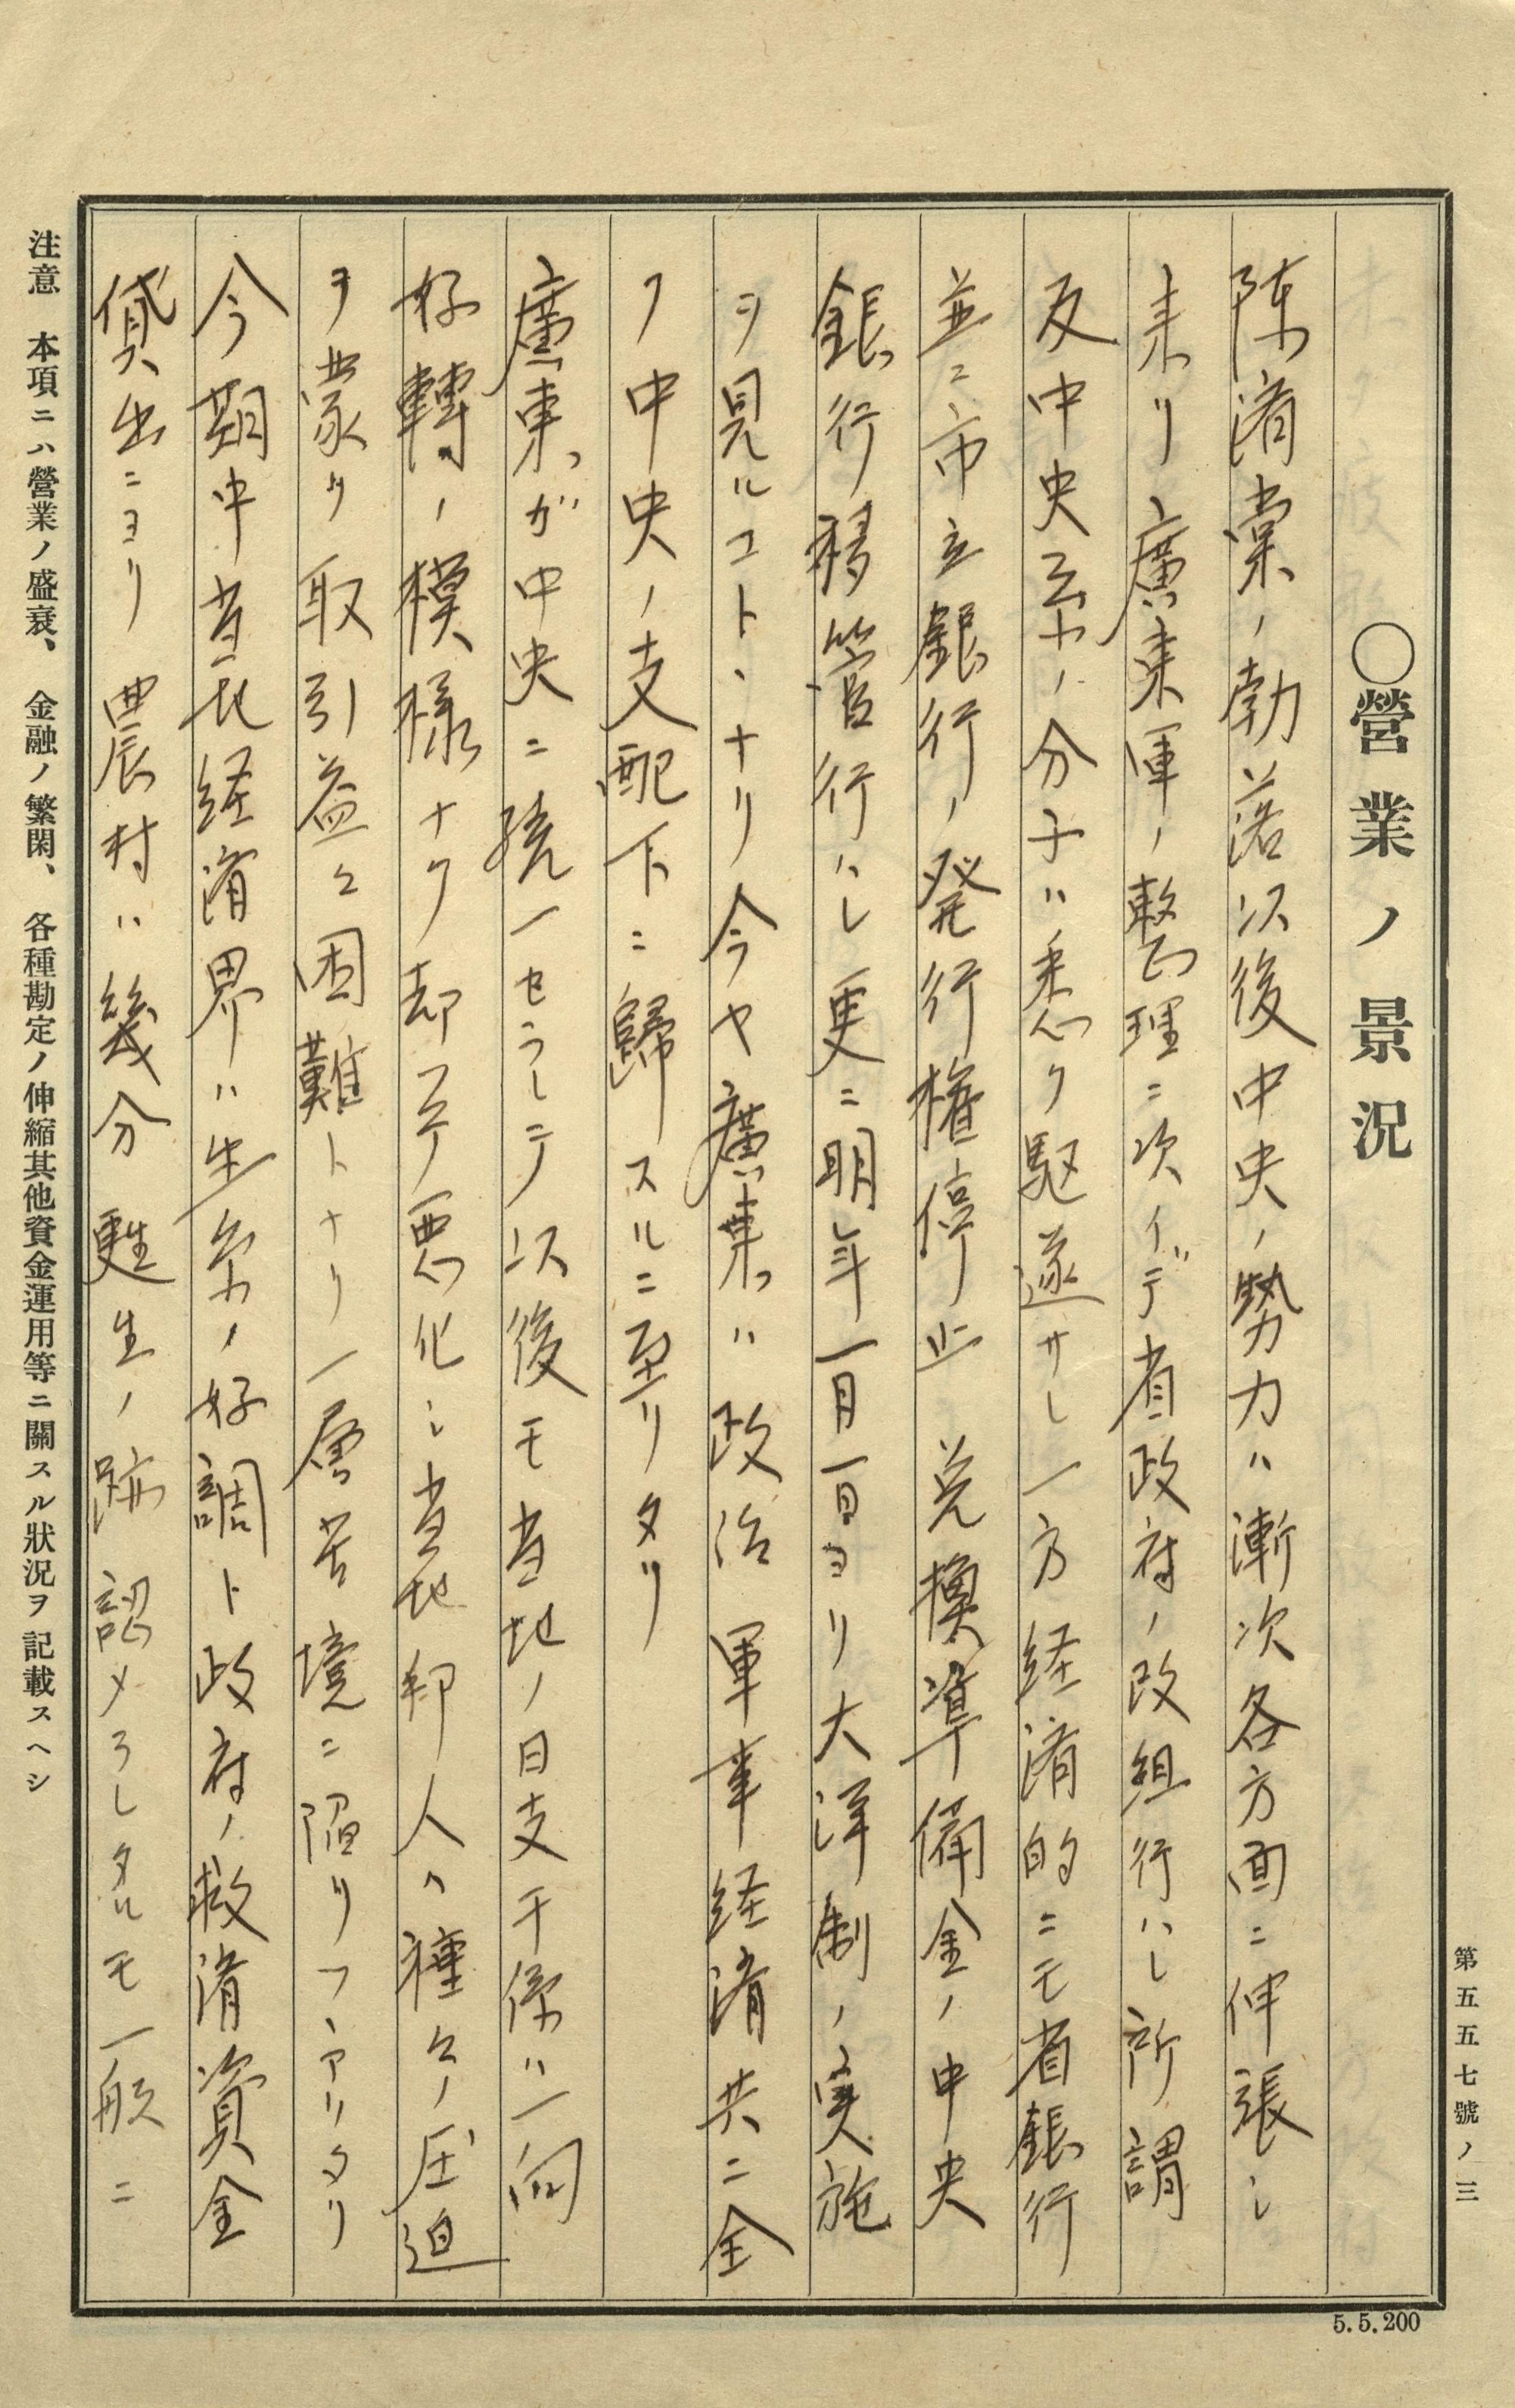 第五五七號ノ三
〇營業ノ景況
陳済棠ノ勃落以後中央ノ勢力ハ漸次各方面ニ伸張シ
来リ廣東軍ノ整理ニ次イデ省政府ノ改組行ハレ所謂
反中央系ノ分子ハ悉ク駆逐サレ一方経済的ニモ省銀行
並ニ市立銀行ノ発行権停止 兌換準備金ノ中央
銀行移管行ハレ更ニ明年一月一日ヨリ大洋制ノ実施
ヲ見ルコトヽナリ今ヤ廣東ハ政治 軍事経済共ニ全
ク中央ノ支配下ニ歸スルニ至リタリ
廣東ガ中央ニ統一セラレテ以後モ当地ノ日支干係ハ一向
好轉ノ模様ナク却ッテ悪化シ当地邦人ハ種々ノ圧迫
ヲ蒙リ取引益々困難トナリ一層苦境ニ陥リツヽアリタリ
今期中当地経済界ハ生糸ノ好調ト政府ノ救済資金
貸出ニヨリ農村ハ幾分甦生ノ跡認メラレタルモ一般ニ
注意 本項ニハ營業ノ盛衰、金融ノ繁閑、各種勘定ノ伸縮其他資金運用等ニ關スル狀況ヲ記載スヘシ
5.5.200